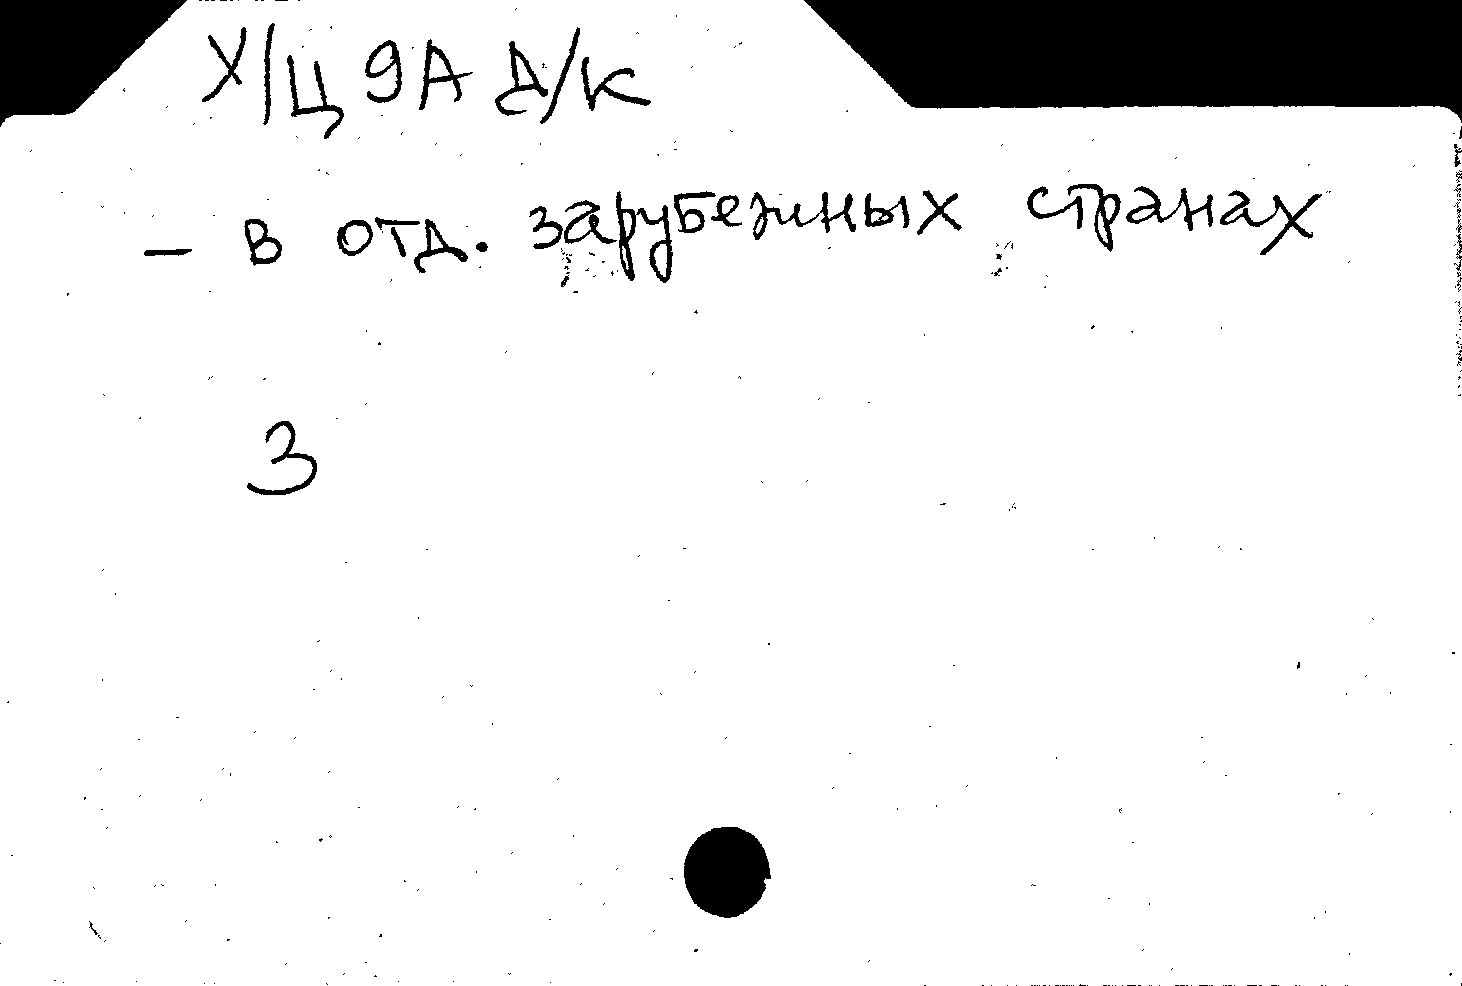 Х/Ц 9А Д/К
– в отд. зарубежных странах
З